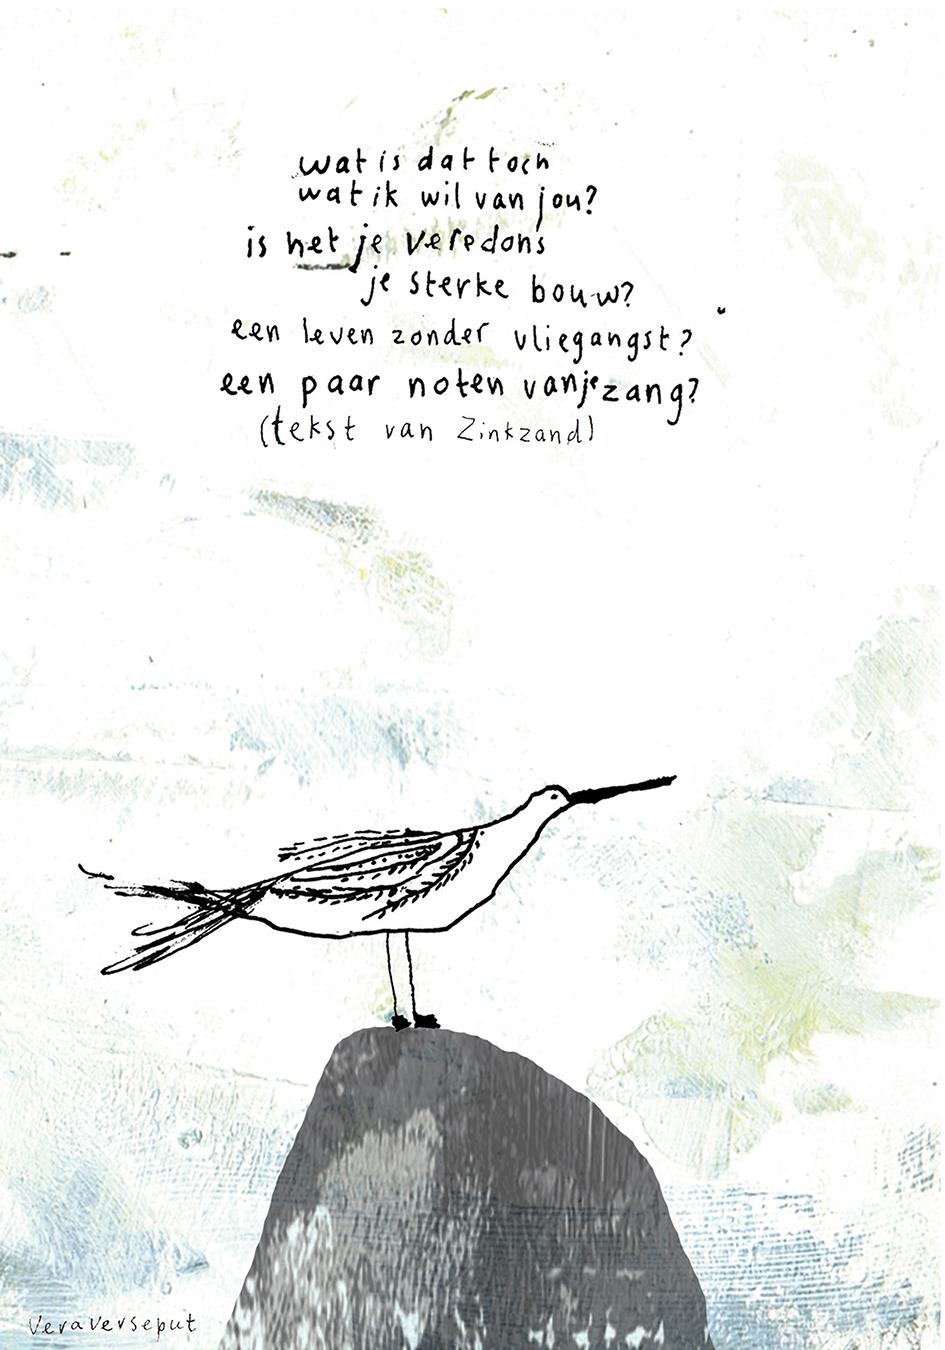 wat is dat toch
wat ik wil van jou?
is het je veredons
je sterke bouw?
een leven zonder vliegangst?
een paar noten van je zang?
(tekst van Zinkzand)
Veraverseput